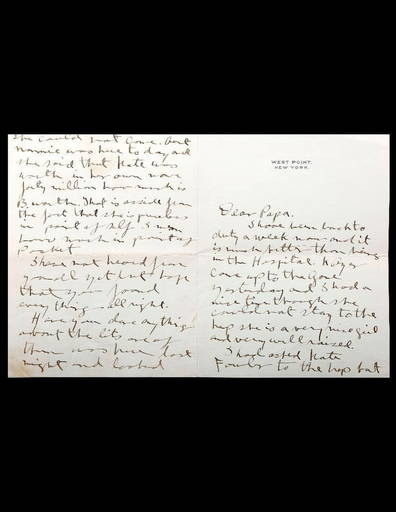 WEST POINT.
NEW YORK.
Dear Papa.
I have been back to
duty a week now and it
is much better than being
in the Hospital.
came up to the game
yesterday and I had a
nice time though she
could not stay to the
hop she is a very nice girl
and very well raised.
I had asked Kate
Fowler to the hop but
she could not come. But
Mamie was here to day and
she said that Kate was
worth in her own name
million how much is
B. worth. That is aside from
the fact that she is priceless
in point of self. I mean
how much in point of
pocket
I have not heard from
you all yet but hope
that you found
everything all right.
Have you done anything
about the one of
them was here last
night and looked